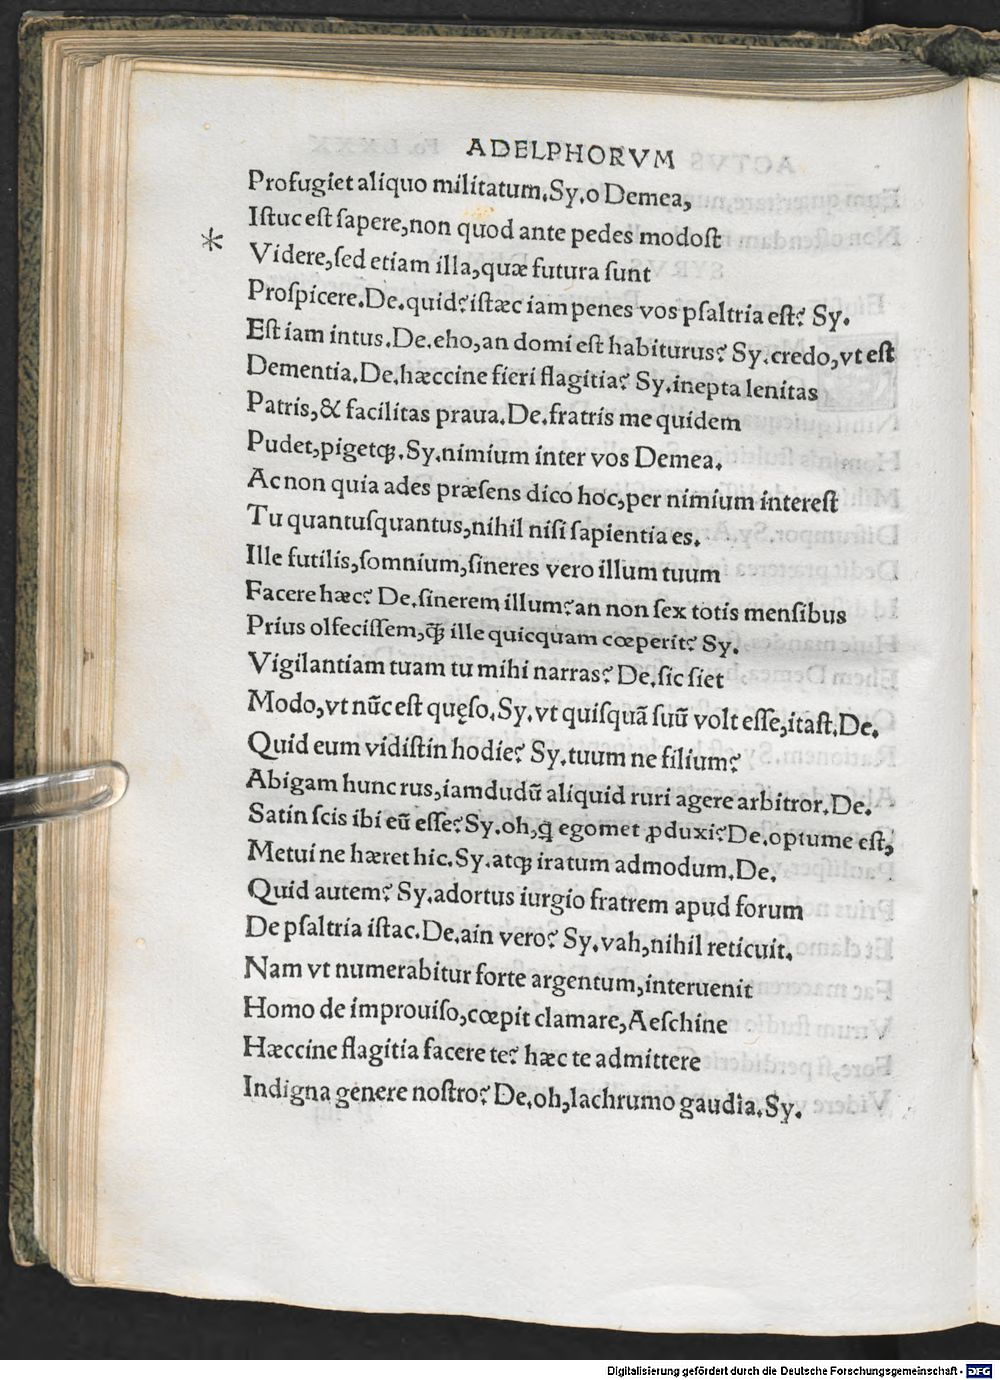 ADELPHORVM
Profugiet aliquo militatum.Sy.o Demea,
Iſtuc eſt ſapere,non quod ante pedes modoſt
* Videre,ſed etiam illa,quæ futura ſunt
Proſpicere.De.quid?iſtæc iam penes vos pſaltria eſt? Sy.
Eſt iam intus.De.eho,an domi eſt habiturus? Sy.credo,vt eſt
Dementia.De.hæccine fieri flagitia? Sy.inepta lenitas
Patris,& facilitas praua.De.fratris me quidem
Pudet,pigetqꝫ.Sy.nimium inter vos Demea.
Ac non quia ades præſens dico hoc,per nimium intereſt
Tu quantuſquantus,nihil niſi ſapientia es.
Ille futilis,ſomnium,ſineres vero illum tuum
Facere hæc? De.ſinerem illum?an non ſex totis menſibus
Prius olfeciſſem,q̃ꝫ ille quicquam cœperit? Sy.
Vigilantiam tuam tu mihi narras? De.ſic ſiet
Modo,vt nūc eſt quęſo.Sy.vt quiſquã ſuū volt eſſe,itaſt.De.
Quid eum vidiſtin hodie? Sy.tuum ne filium?
Abigam hunc rus,iamdudū aliquid ruri agere arbitror.De.
Satin ſcis ibi eū eſſe? Sy.oh,q̃ egomet ꝓduxi?De.optume eſt,
Metui ne hæret hic.Sy.atqꝫ iratum admodum.De.
Quid autem? Sy.adortus iurgio fratrem apud forum
De pſaltria iſtac.De.ain vero? Sy.vah,nihil reticuit.
Nam vt numerabitur forte argentum,interuenit
Homo de improuiſo,cœpit clamare,Aeſchine
Hæccine flagitia facere te? hæc te admittere
Indigna genere noſtro? De.oh,lachrumo gaudia.Sy.
Digitalisierung gefördert durch die Deutsche Forschungsgemeinschaft - DFG